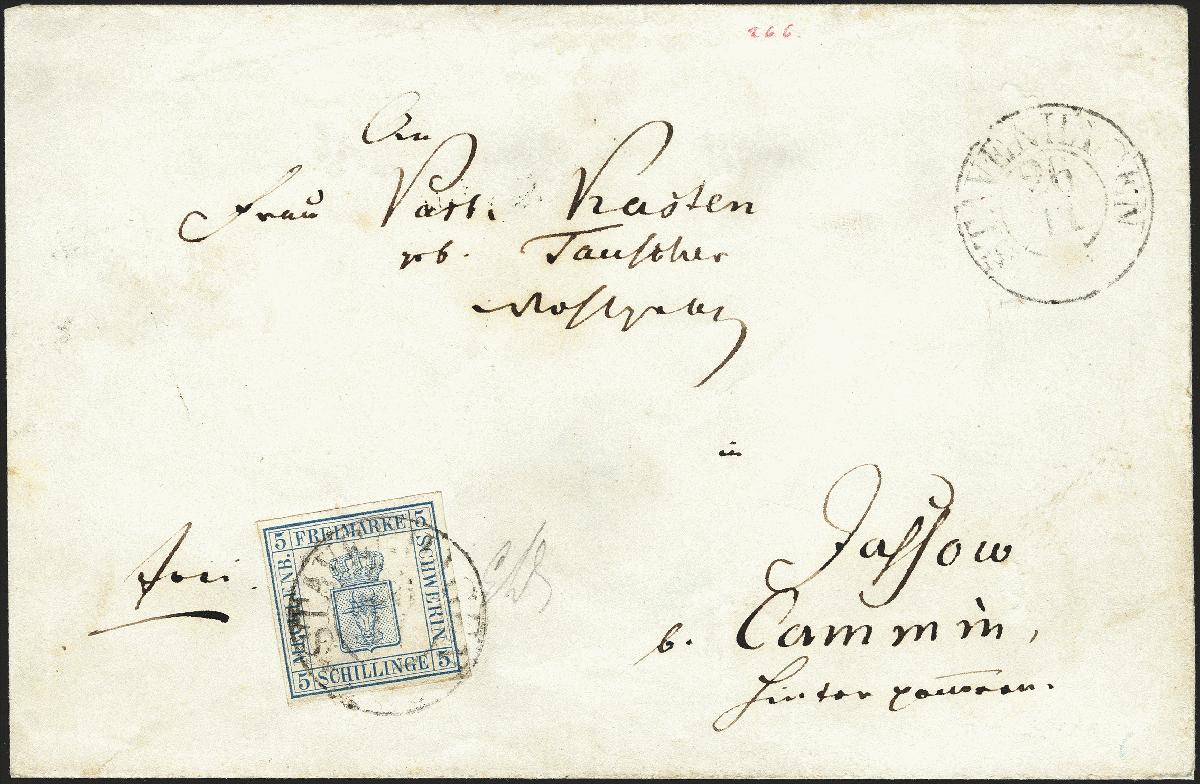 266.
An
Frau Past. Kasten
geb. Tauscher
STAVENHAGEN
26
11
in
Jassow
b. Cammin,
Hinterpommern.
frei.
5 FREIMARKE 5
MECKLENB.
SCHWERIN
5 SCHILLINGE 5